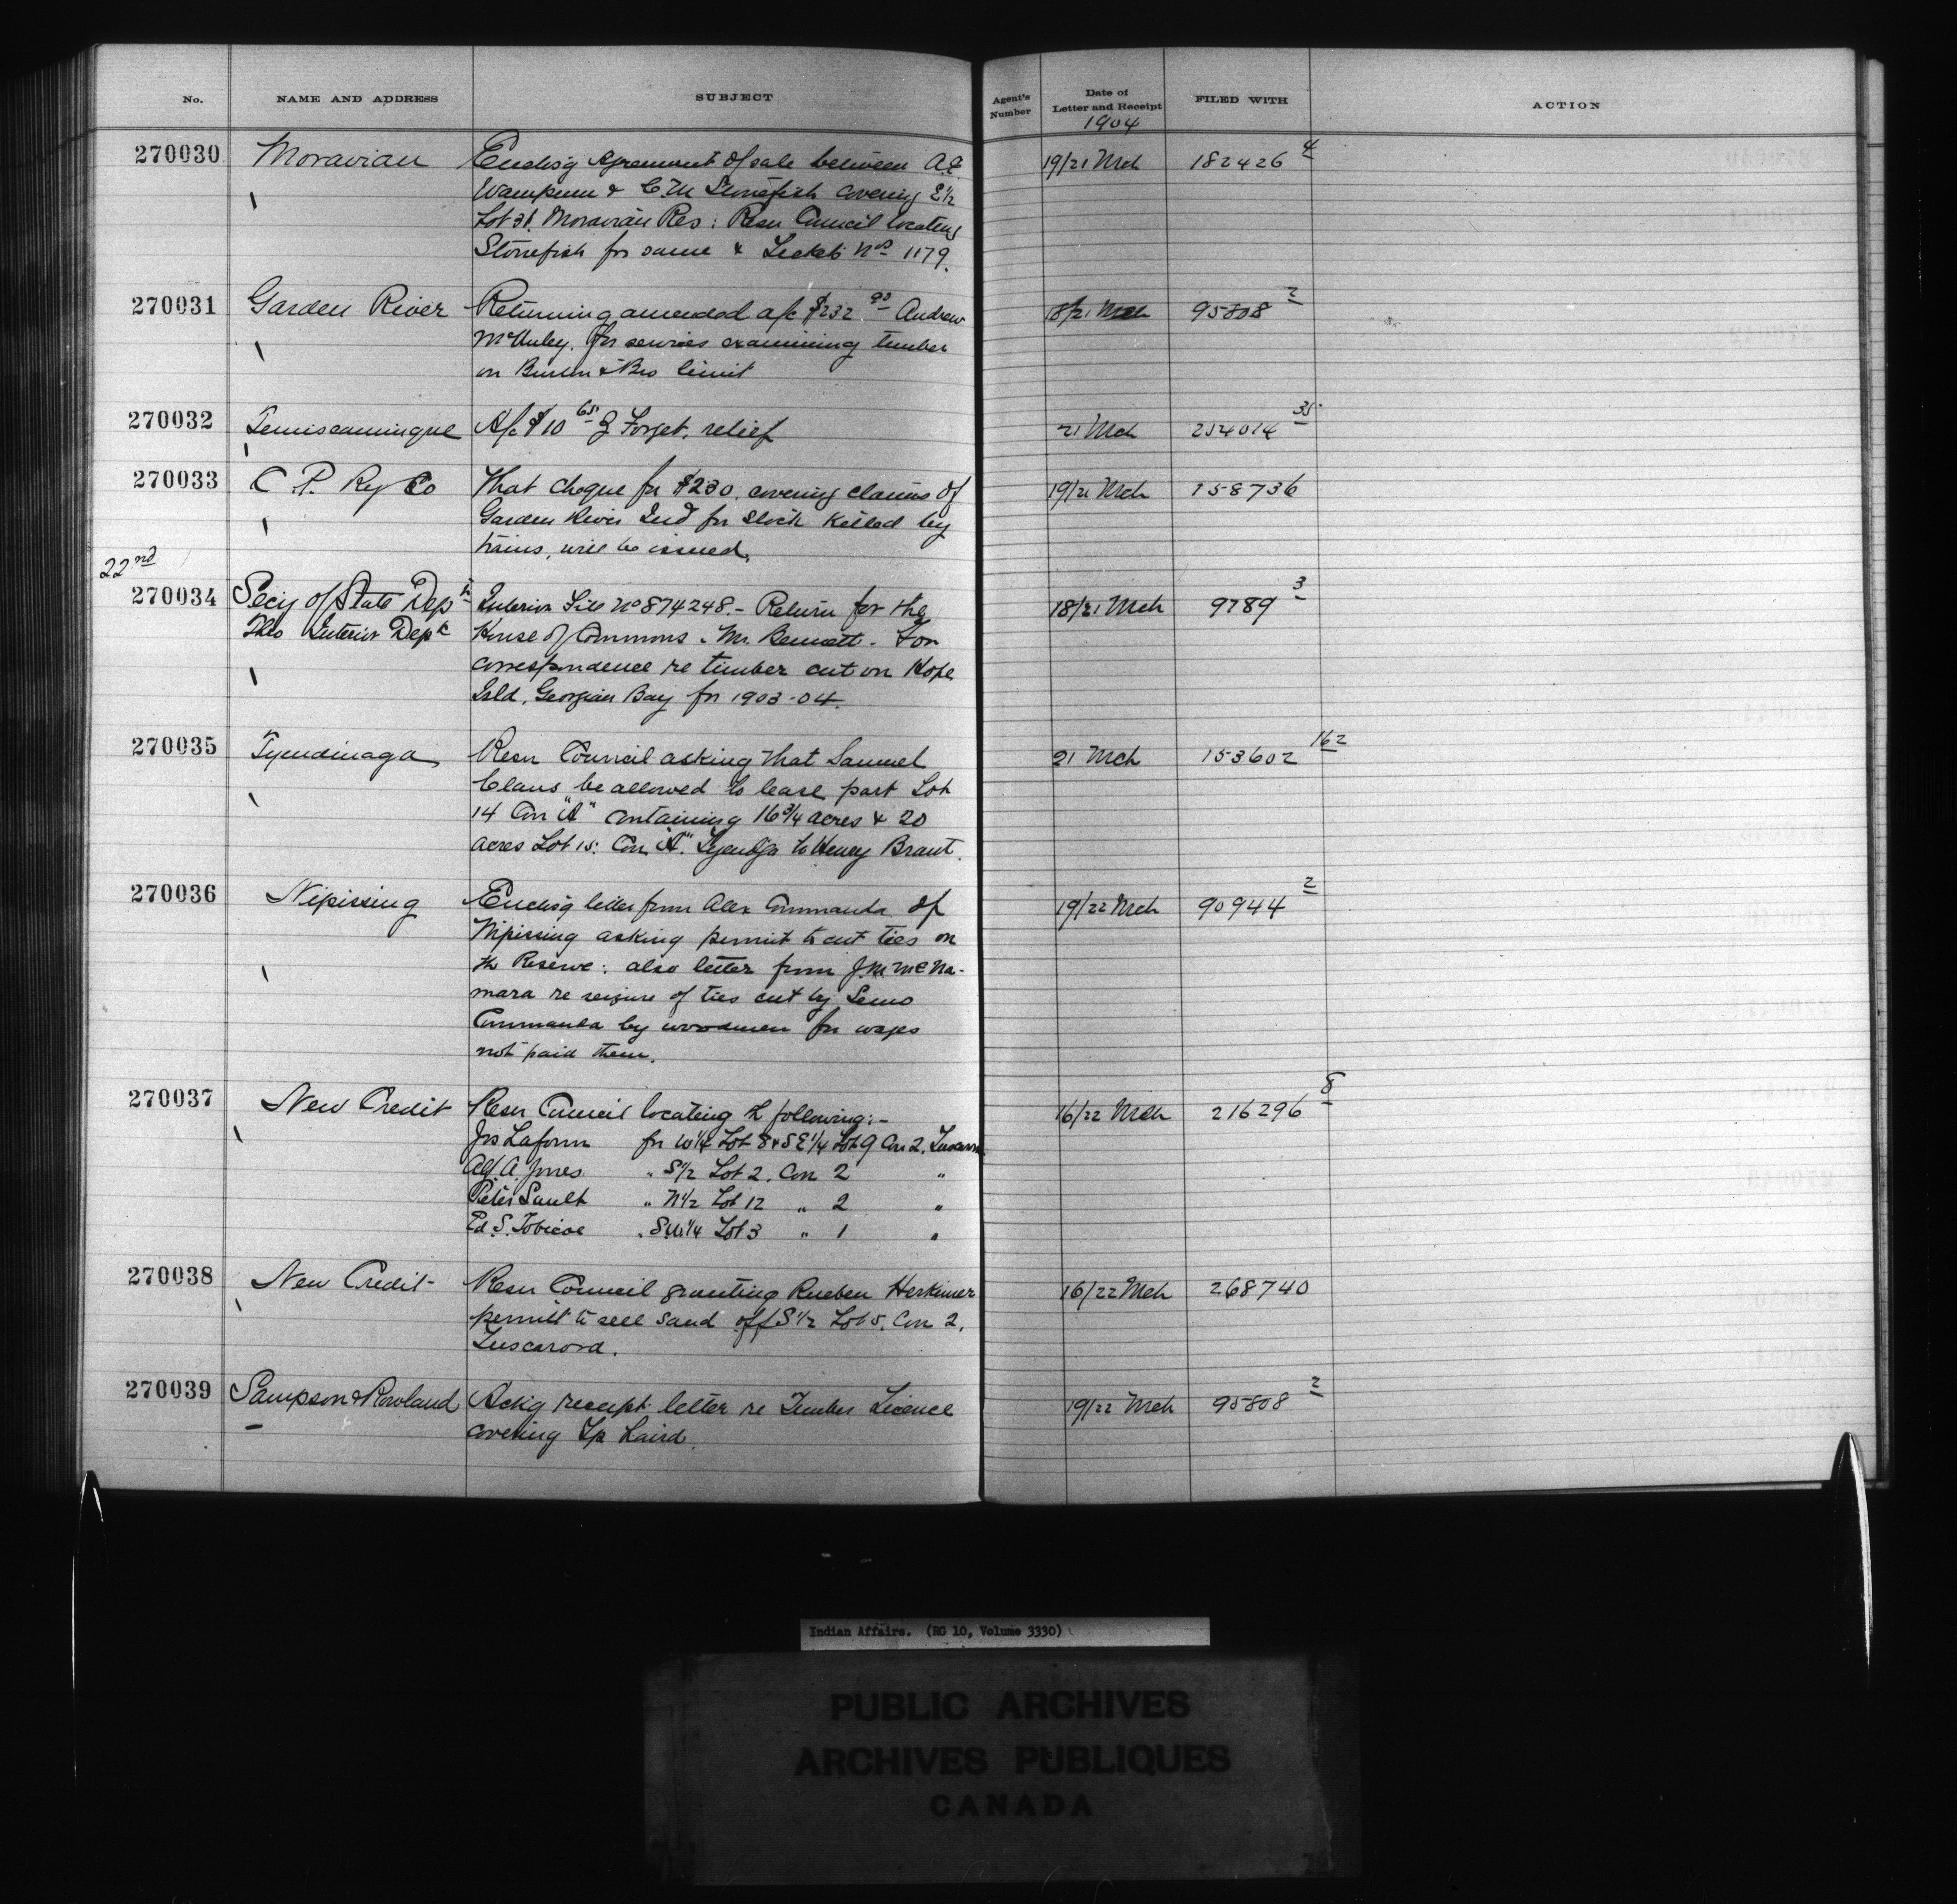 No. NAME AND ADDRESS SUBJECT Agent's Number Date of Letter and Receipt FILED WITH ACTION
1904
270030 Moravian Enclosg Agreement of sale between A.E. 19/21 Mch 182426 4
Wampum & C.M Stonefish covering E½
Lot 21. Moravian Res: Resn Council locating
Stonefish for same & Ticket Nos 1179.
270031 Garden River Returning amended a/c $232 90 Andrew 18/21 Mch 95808 2
for services examining timber
on & Bro limit
270032 Temiscamingue A/c $10 65 Forget. relief 21 Mch 254014 35
270033 C P. Ry Co That cheque for $230. covering claims of 19/21 Mch 158736
Garden River Ind for stock killed by
trains, will be issued.
22nd
270034 Secy of State Dept Interior File No 874248.- Return for the 18/21 Mch 9789 3
Thro Interior Dept House of Commons. Mr. Bennett. For
correspondence re timber cut on Hope
Isld, Georgian Bay for 1903-04.
270035 Tyendinaga Resn Council asking that Samuel 21 Mch 153602 162
Claus be allowed to lease part Lot
14 Con "A" containing 16¾ acres & 20
acres Lot 15. Con "A". Tyendga to Henry Brant.
270036 Nipissing Enclosg letter from Alex Commanda of 19/22 Mch 90944 2
Nipissing asking permit to cut ties on
the Reserve: also letter from J.M. McNa-
mara re seizure of ties cut by Semo
Commanda by woodmen for wages
not paid them.
270037 New Credit Resn Council locating the following:- 16/22 Mch 216296 8
Jos Laform for W¼ Lot 8 & SE¼ Lot 9 Con 2. Tuscarora
Alf. A. Jones " S½ Lot 2. Con 2 "
Peter Sault " N½ Lot 12 " 2 "
Ed. S. Tobicoe " SW¼ Lot 3 " 1 "
270038 New Credit Resn Council granting Rueben Herkimer 16/22 Mch 268740
permit to sell sand off S½ Lot 5. Con 2.
Tuscarora.
270039 Sampson & Rowland Ackg receipt letter re Timber Licence 19/22 Mch 95808 2
covering Tp Laird.
Indian Affairs. (RG 10, Volume 3330)
PUBLIC ARCHIVES
ARCHIVES PUBLIQUES
CANADA